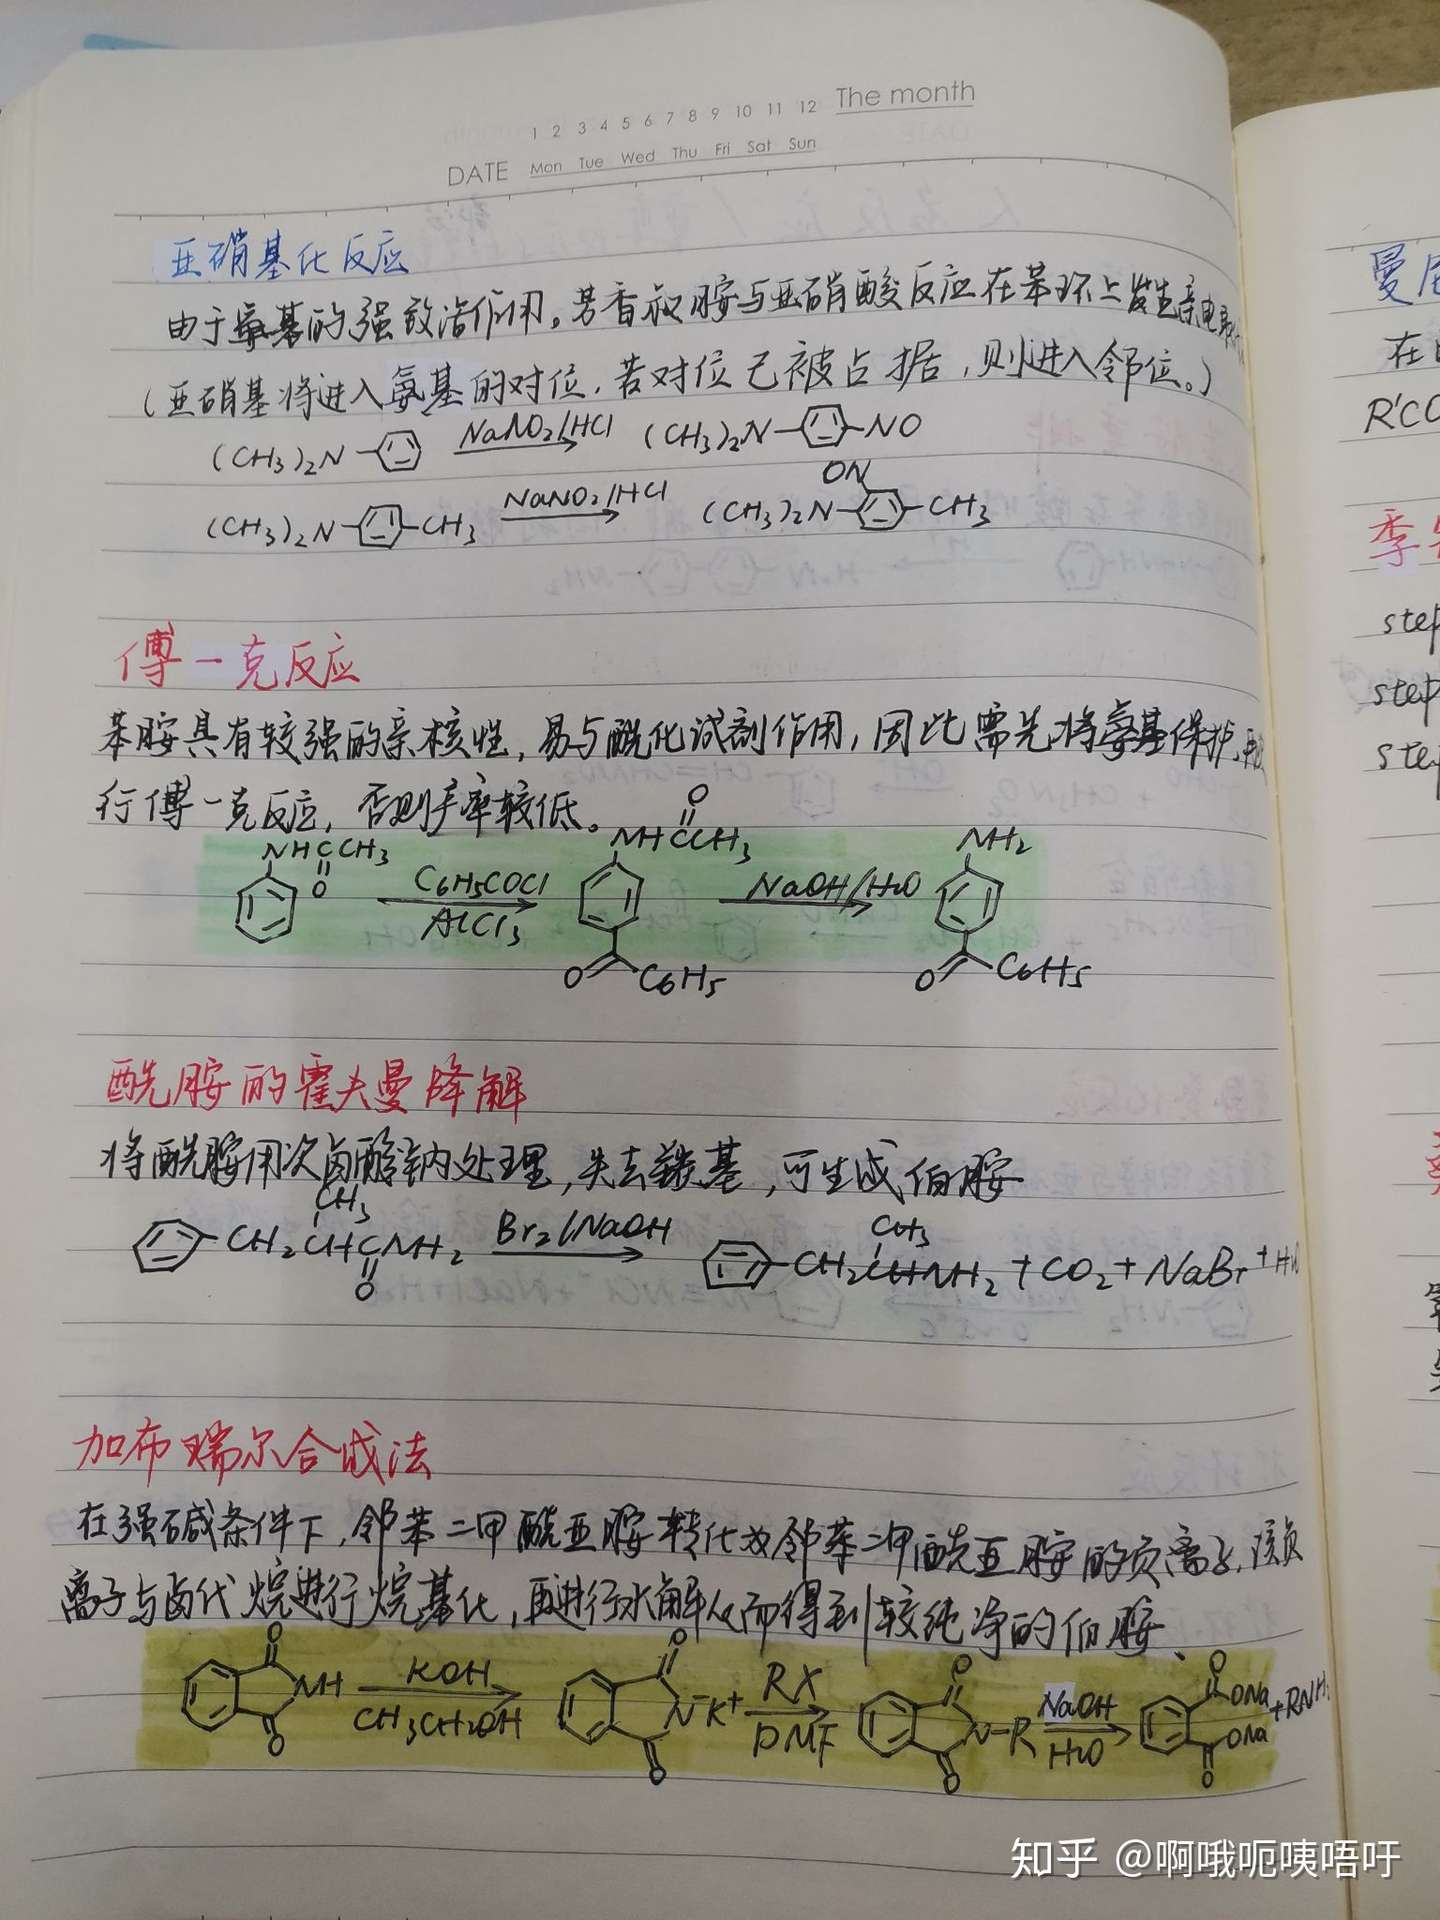 1 2 3 4 5 6 7 8 9 10 11 12 The month
DATE Mon Tue Wed Thu Fri Sat Sun
亚硝基化反应
由于氨基的强致活作用。芳香叔胺与亚硝酸反应在苯环上发生亲电取
(亚硝基将进入氨基的对位,若对位已被占据,则进入邻位。)
(CH3)2N NaNO2/HCl (CH3)2N NO
ON
(CH3)2N CH3 NaNO2/HCl (CH3)2N CH3
傅-克反应
苯胺具有较强的亲核性,易与酰化试剂作用,因此需先将氨基保护,再
行傅-克反应,否则产率较低。
O
NHCCH3 NHCCH3 NH2
O C6H5COCl NaOH/H2O
AlCl3
O C6H5 O C6H5
酰胺的霍夫曼降解
将酰胺用次卤酸钠处理,失去羰基,可生成伯胺
CH3 CH3
CH2CHCNH2 Br2/NaOH CH2CHNH2 + CO2 + NaBr + H
O
加布瑞尔合成法
在强碱条件下,邻苯二甲酰亚胺转化为邻苯二甲酰亚胺的负离子,该负
离子与卤代烷进行烷基化,再进行水解从而得到较纯净的伯胺、
O O O O
NH KOH N-K+ RX N-R NaOH ONa +RNH
CH3CH2OH DMF H2O ONa
O O O O
在
R'CO
step
step
step
知乎 @啊哦呃咦唔吁